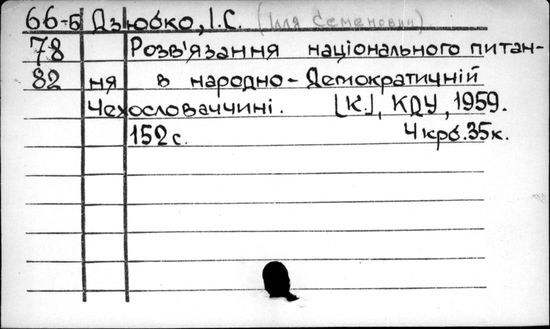 66-Б Дзюбко, І.С. (Ілля Семенович).
78 Розв'язання національного питан-
82 ня в народно-демократичній
Чехословаччині. [К.], КДУ, 1959.
152 с. 4 крб. 35 к.